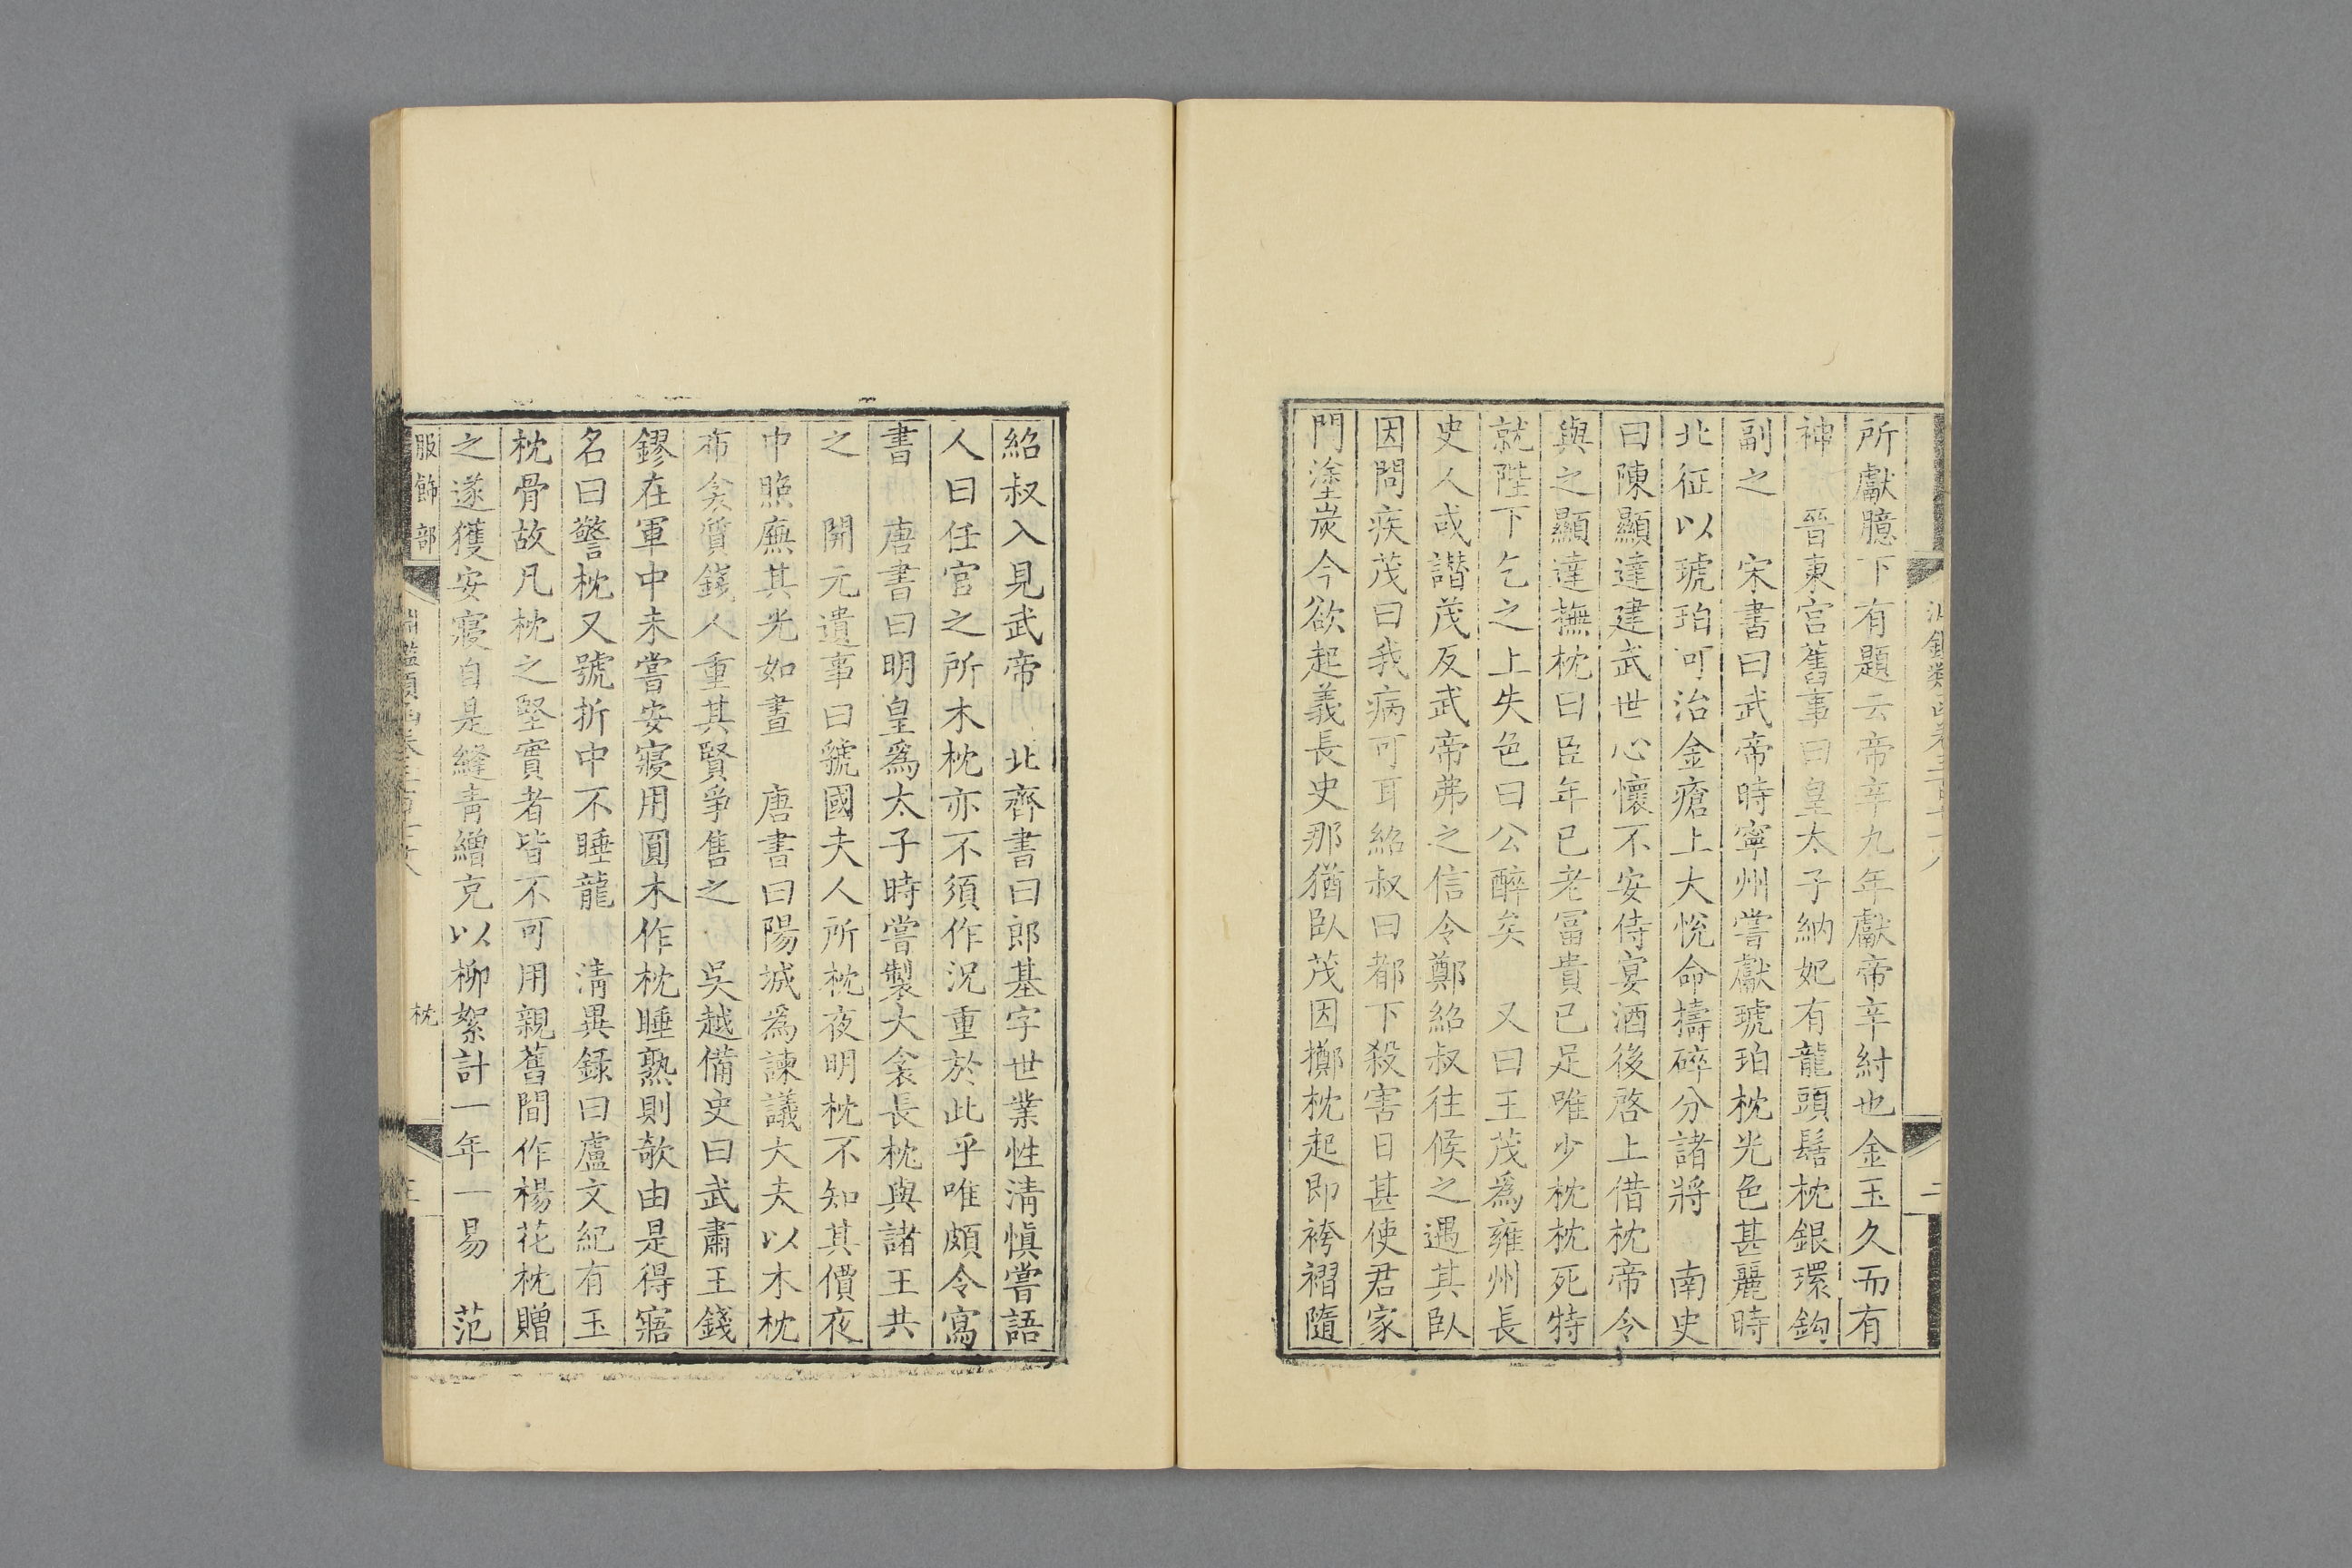 所獻臆下有題云帝辛九年獻帝辛紂也金玉久而有
神　晉東宮舊事曰皇太子納妃有龍頭髻枕銀環鉤
副之　宋書曰武帝時寧州嘗獻琥珀枕光色甚麗時
北征以琥珀可治金瘡上大悅命擣碎分諸將　南史
曰陳顯達建武世心懷不安侍宴酒後啓上借枕帝令
與之顯達撫枕曰臣年已老富貴已足唯少枕枕死特
就陛下乞之上失色曰公醉矣　又曰王茂爲雍州長
史人或譖茂反武帝弗之信令鄭紹叔往候之遇其臥
因問疾茂曰我病可耳紹叔曰都下殺害日甚使君家
門塗炭今欲起義長史那猶臥茂因擲枕起即袴褶隨
紹叔入見武帝　北齊書曰郎基字世業性淸愼嘗語
人曰任官之所木枕亦不須作況重於此乎唯頗令寫
書　唐書曰明皇爲太子時嘗製大衾長枕與諸王共
之　開元遺事曰虢國夫人所枕夜明枕不知其價夜
中照廡其光如晝　唐書曰陽城爲諫議大夫以木枕
布衾質錢人重其賢爭售之　吳越備史曰武肅王錢
鏐在軍中未嘗安寢用圓木作枕睡熟則欹由是得寤
名曰警枕又號折中不睡龍　淸異録曰盧文紀有玉
枕骨故凡枕之堅實者皆不可用親舊間作楊花枕贈
之遂獲安寢自是縫青繒充以柳絮計一年一易　范
服飾部　枕